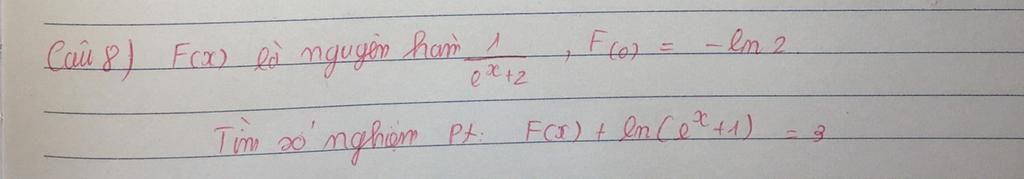 Câu 8) F(x) là nguyên hàm 1/(e^x+2), F(0) = -ln 2.
Tìm số nghiệm pt: F(x) + ln(e^x+1) = 3